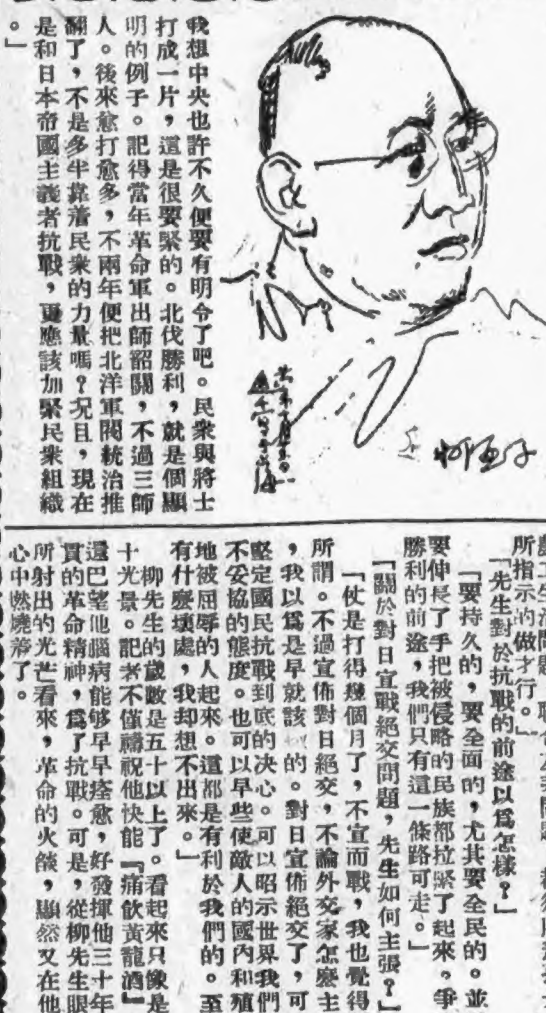 柳亞子
我想中央也許不久便要有明令了吧。民衆與將士
打成一片，這是很要緊的。北伐勝利，就是個顯
明的例子。記得當年革命軍出師韶關，不過三師
人。後來愈打愈多，不兩年便把北洋軍閥統治推
翻了，不是多半靠着民衆的力量嗎？況且，現在
是和日本帝國主義者抗戰，更應該加緊民衆組織
。」
所指示的做才行。」
「先生對於抗戰的前途以爲怎樣？」
「要持久的，要全面的，尤其要全民的。並
要伸長了手把被侵略的民族都拉緊了起來，爭
勝利的前途，我們只有這一條路可走。」
「關於對日宣戰絕交問題，先生如何主張？」
「仗是打得幾個月了，不宣而戰，我也覺得
所謂。不過宣佈對日絕交，不論外交家怎麼主
，我以爲是早就該的。對日宣佈絕交了，可
堅定國民抗戰到底的决心。可以昭示世界我們
不妥協的態度。也可以早些使敵人的國內和殖
地被屈辱的人起來。這都是有利於我們的。至
有什麼壞處，我却想不出來。」
柳先生的歲數是五十以上了。看起來只像是
十光景。記者不僅禱祝他快能『痛飲黃龍酒』
還巴望他腦病能够早早痊愈，好發揮他三十年
貫的革命精神，爲了抗戰。可是，從柳先生眼
所射出的光芒看來，革命的火燄，顯然又在他
心中燃燒着了。